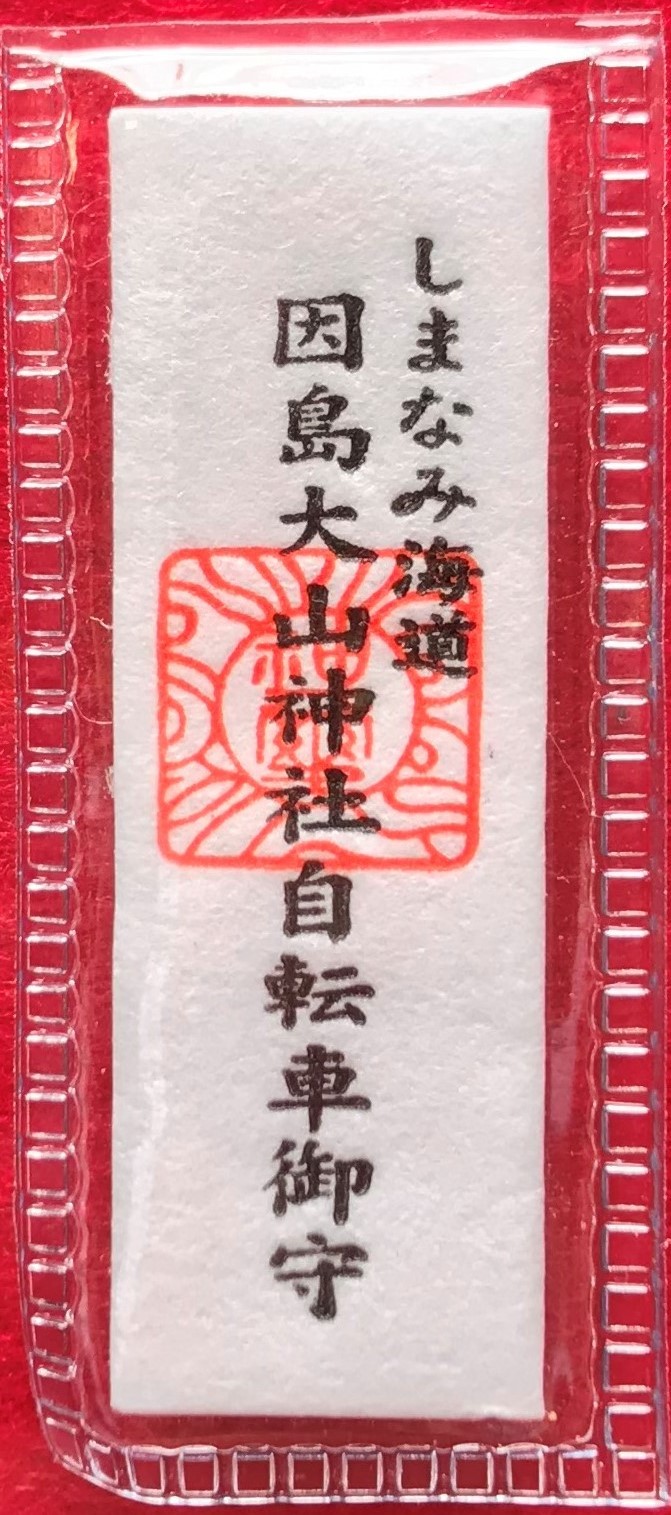 しまなみ海道
因島大山神社自転車御守